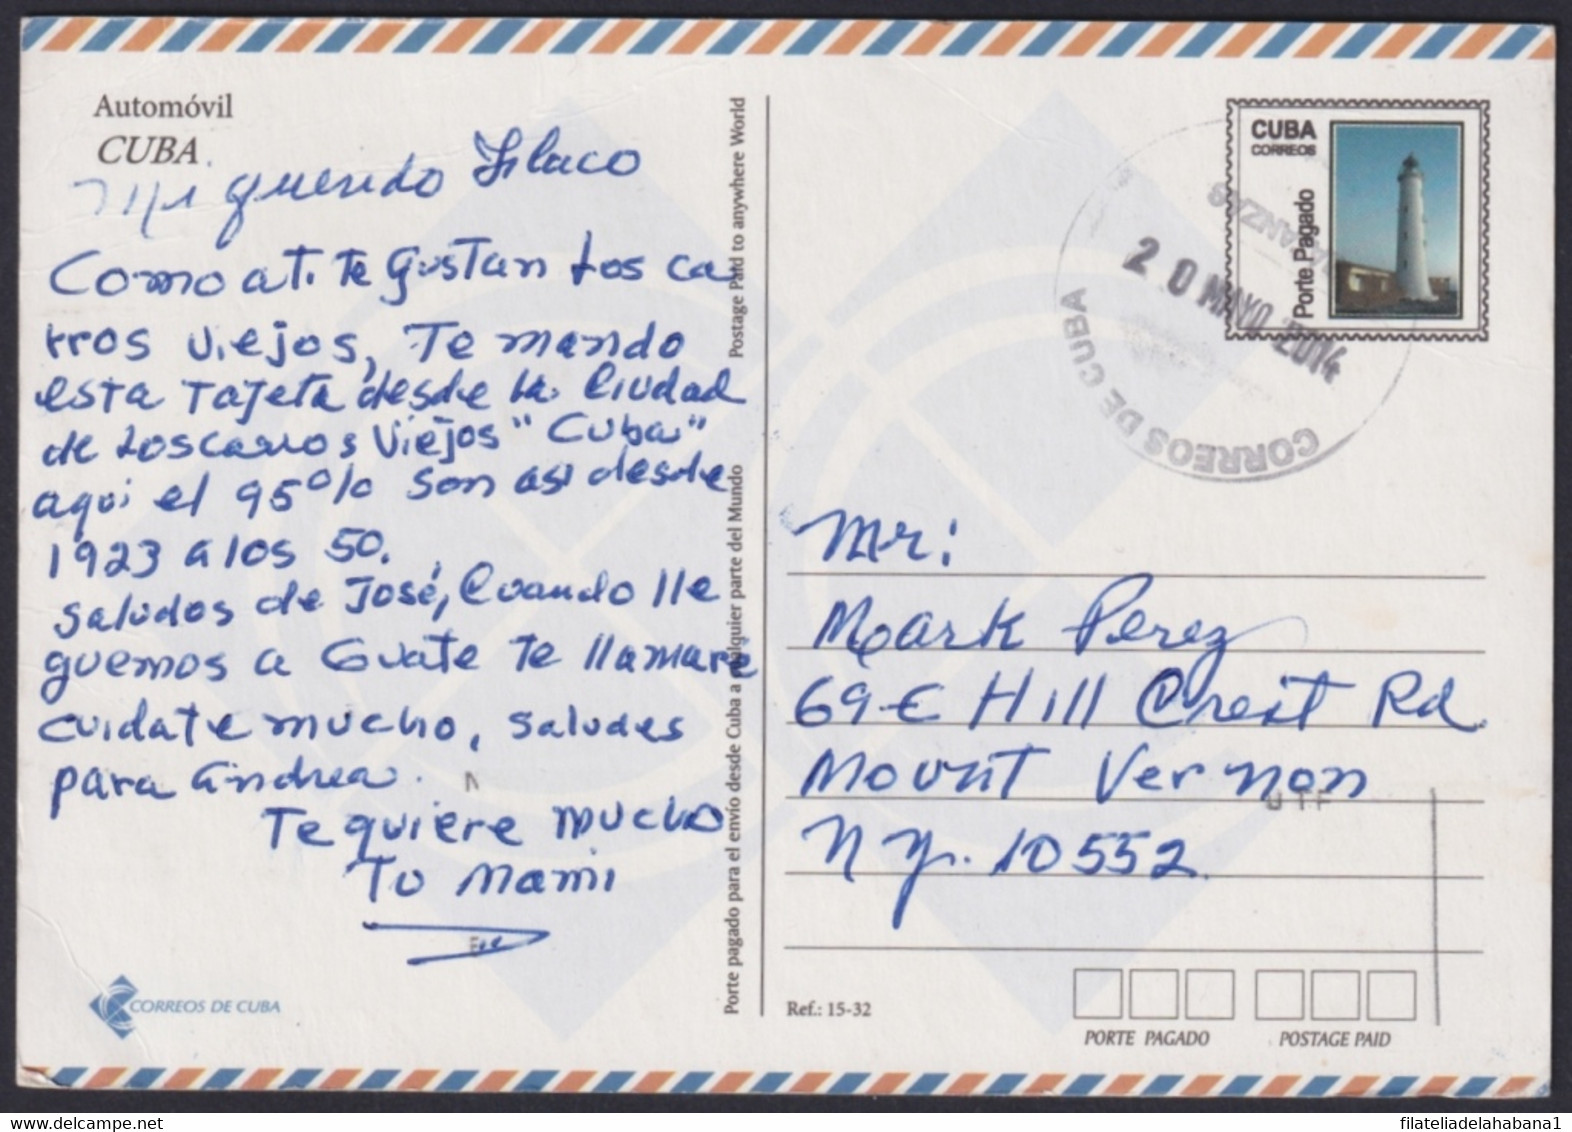 Automóvil
CUBA
Mi querido Flaco
Como a ti te Gustan Los ca
rros viejos, Te mando
esta Tajeta desde la Ciudad
de Los carros viejos "Cuba"
aqui el 95% son asi desde
1923 a los 50.
saludos de José, Cuando lle
guemos a Guate te llamare
cuidate mucho, saludes
para Andrea.
Te quiere mucho
Tu Mami
CORREOS DE CUBA
Postage Paid to anywhere World
Porte pagado para el envío desde Cuba a cualquier parte del Mundo
CUBA
CORREOS
Porte Pagado
MATANZAS
20 MAYO 2014
CORREOS DE CUBA
Mr:
Mark Perez
69 E Hill Crest Rd.
Mount Vernon
N y. 10552.
Ref.: 15-32
PORTE PAGADO
POSTAGE PAID
filateliadelahabana1